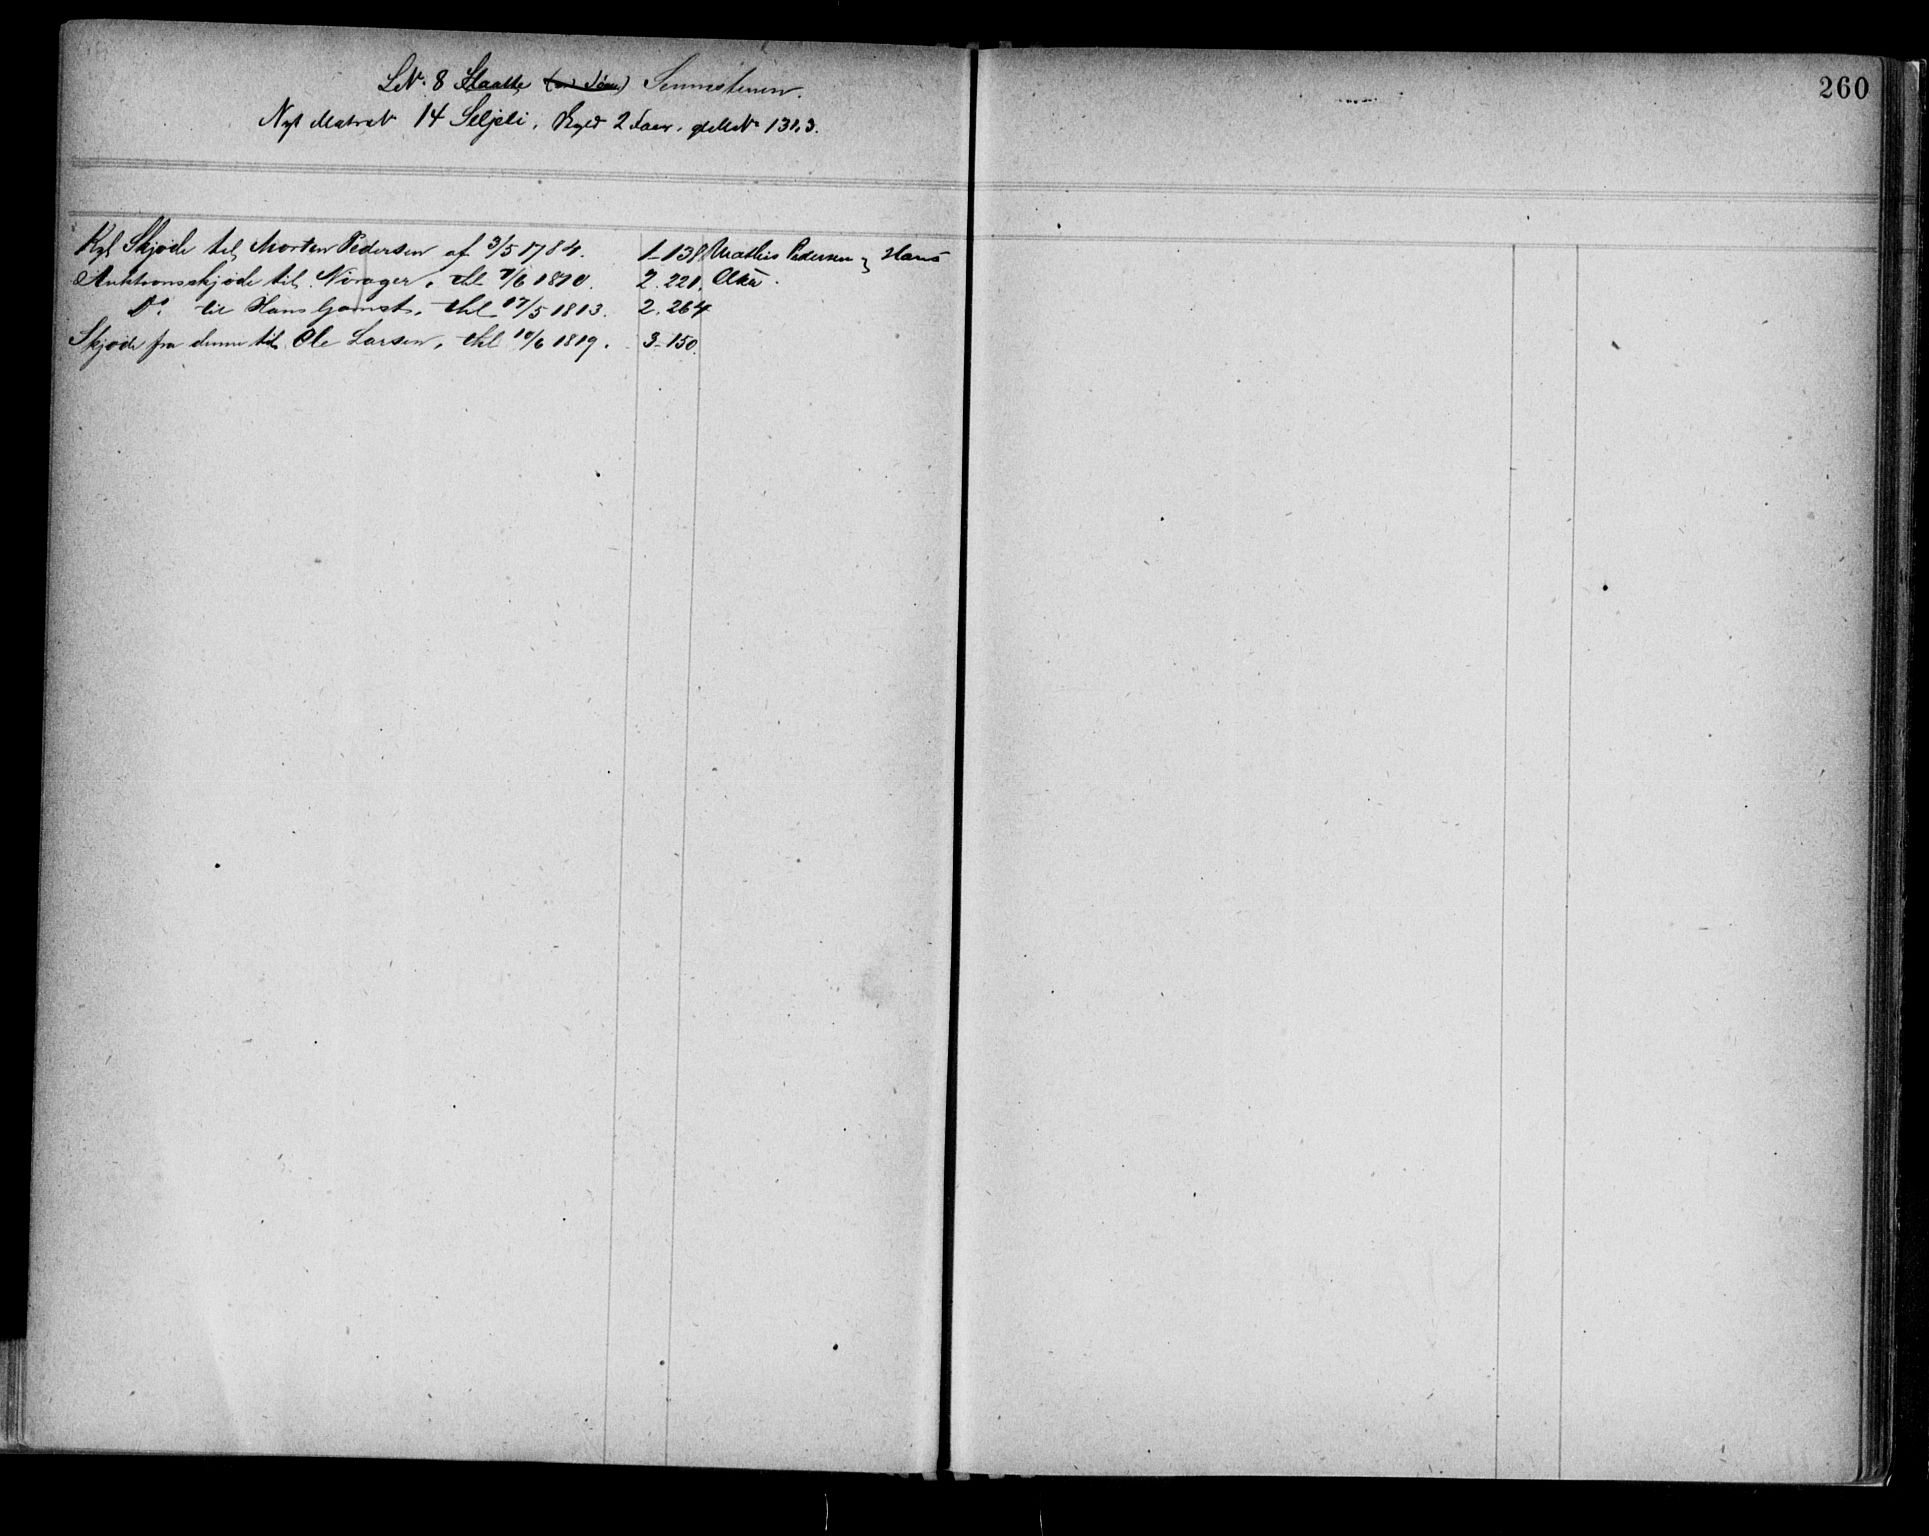 LN. 8 Slaatte Sennesteren.
260
Nyt Matr N 14 Seljeli, Skyld 2 Faar, gl MN 131,3.
Kgl Skjøde til Morten Pedersen af 3/5 1784. 1-138 Mathis Pedersen Hans
Auktionsskjøde til Nørager, thl 7/6 1810. 2. 221.
Do. til Hans Gamst, thl 17/5 1813. 2. 264
Skjøde fra denne til Ole Larsen, thl 10/6 1819. 3-150.